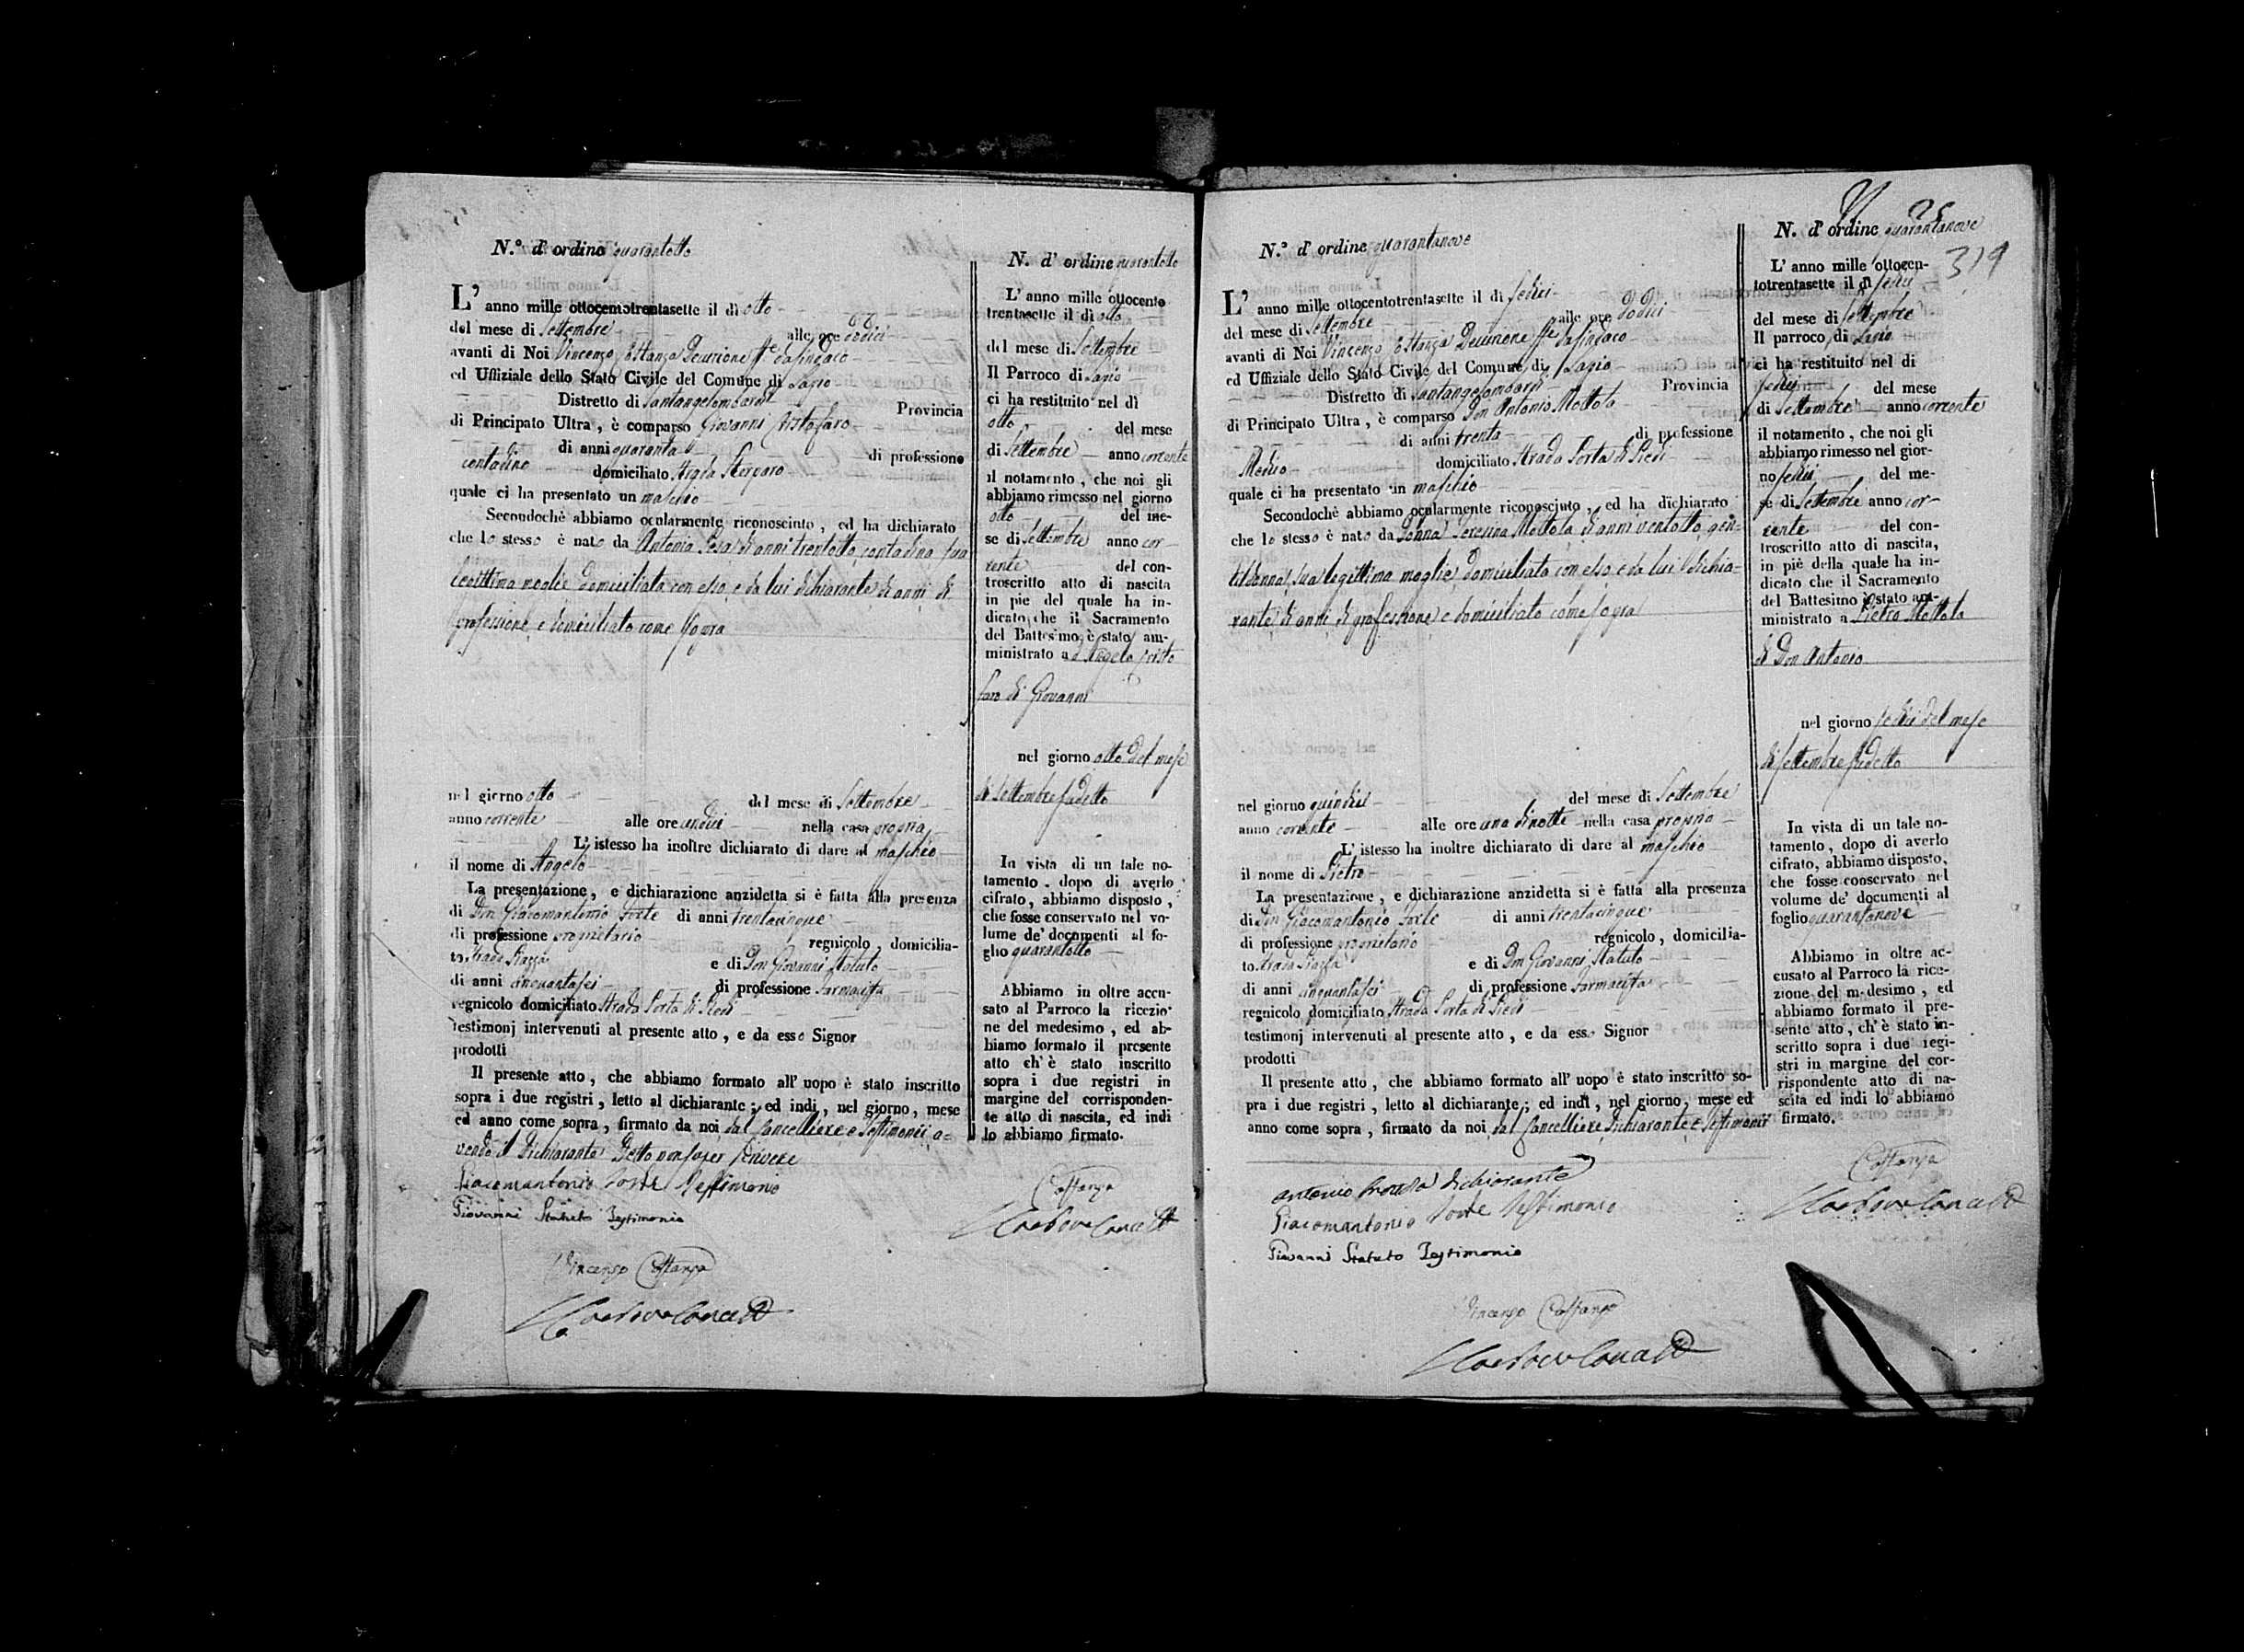 N.º d' ordine quarantotto
L' anno mille ottocentotrentasette il dì otto
del mese di Settembre alle ore dodici
avanti di Noi Vincenzo Costanza Decurione ff.e da Sindaco
ed Uffiziale dello Stato Civile del Comune di Lapio
Distretto di Santangelombardi Provincia
di Principato Ultra, è comparso Giovanni Cristofaro
di anni quaranta di professione
contadino domiciliato Strada
quale ci ha presentato un maschio
Secondochè abbiamo ocularmente riconosciuto, ed ha dichiarato
che lo stesso è nato da Antonia di anni trentotto contadina sua
legittima moglie domiciliata con esso, e da lui dichiarante di anni di
professione, e domiciliato come sopra
nel giorno otto del mese di Settembre
anno corrente alle ore undici nella casa propria
L' istesso ha inoltre dichiarato di dare al maschio
il nome di Angelo
La presentazione, e dichiarazione anzidetta si è fatta alla presenza
di Don Giacomantonio Forte di anni trentacinque
di professione proprietario regnicolo, domicilia-
to Strada Piazza e di Don Giovanni Statuto
di anni cinquantasei di professione Farmacista
regnicolo domiciliato Strada Porta di Piedi
testimonj intervenuti al presente atto, e da esso Signor
prodotti
Il presente atto, che abbiamo formato all' uopo è stato inscritto
sopra i due registri, letto al dichiarante; ed indi, nel giorno, mese
ed anno come sopra, firmato da noi dal Cancelliere e Testimonii, a-
vendo il Dichiarante detto non saper scrivere
Giacomantonio Forte Testimonio
Giovanni Statuto Testimonio
Vincenzo Costanza
N. d' ordine quarantotto
L' anno mille ottocento
trentasette il dì otto
del mese di Settembre
Il Parroco di Lapio
ci ha restituito nel dì
otto del mese
di Settembre anno corrente
il notamento, che noi gli
abbiamo rimesso nel giorno
otto del me-
se di Settembre anno cor-
rente del con-
troscritto atto di nascita
in pie del quale ha in-
dicato, che il Sacramento
del Battesimo è stato am-
ministrato a Angelo Cristo
faro di Giovanni
nel giorno otto del mese
di Settembre sudetto
In vista di un tale no-
tamento, dopo di averlo
cifrato, abbiamo disposto,
che fosse conservato nel vo-
lume de' documenti al fo-
glio quarantotto
Abbiamo in oltre accu-
sato al Parroco la ricezio-
ne del medesimo, ed ab-
biamo formato il presente
atto ch' è stato inscritto
sopra i due registri in
margine del corrisponden-
te atto di nascita, ed indi
lo abbiamo firmato.
Costanza
N.º d' ordine quarantanove
L' anno mille ottocentotrentasette il dì sedici
del mese di Settembre alle ore dodici
avanti di Noi Vincenzo Costanza Decurione ff.e da Sindaco
ed Uffiziale dello Stato Civile del Comune di Lapio
Distretto di Santangelombardi Provincia
di Principato Ultra, è comparso Don Antonio Mottola
di anni trenta di professione
Medico domiciliato Strada Porta di Piedi
quale ci ha presentato un maschio
Secondochè abbiamo ocularmente riconosciuto, ed ha dichiarato
che lo stesso è nato da Donna Teresina Mottola di anni ventotto, gen-
tildonna, sua legittima moglie, domiciliata con esso, e da lui dichia-
rante, di anni, di professione, e domiciliato come sopra
nel giorno quindici del mese di Settembre
anno corrente alle ore una di notte nella casa propria
L' istesso ha inoltre dichiarato di dare al maschio
il nome di Pietro
La presentazione, e dichiarazione anzidetta si è fatta alla presenza
di Don Giacomantonio Forte di anni trentacinque
di professione proprietario regnicolo, domicilia-
to Strada Piazza e di Don Giovanni Statuto
di anni cinquantasei di professione Farmacista
regnicolo domiciliato Strada Porta di Piedi
testimonj intervenuti al presente atto, e da esso Signor
prodotti
Il presente atto, che abbiamo formato all' uopo è stato inscritto so-
pra i due registri, letto al dichiarante; ed indi, nel giorno, mese ed
anno come sopra, firmato da noi, dal Cancelliere, Dichiarante, e Testimonii
Antonio Mottola dichiarante
Giacomantonio Forte Testimonio
Giovanni Statuto Testimonio
Vincenzo Costanza
N. d' ordine quarantanove
319
L' anno mille ottocen-
totrentasette il dì sedici
del mese di Settembre
Il parroco di Lapio
ci ha restituito nel di
sedici del mese
di Settembre anno corrente
il notamento, che noi gli
abbiamo rimesso nel gior-
no sedici del me-
se di Settembre anno cor-
rente del con-
troscritto atto di nascita,
in piè della quale ha in-
dicato che il Sacramento
del Battesimo è stato am-
ministrato a Pietro Mottola
di Don Antonio
nel giorno sedici del mese
di Settembre sudetto
In vista di un tale no-
tamento, dopo di averlo
cifrato, abbiamo disposto,
che fosse conservato nel
volume de' documenti al
foglio quarantanove
Abbiamo in oltre ac-
cusato al Parroco la rice-
zione del m-desimo, ed
abbiamo formato il pre-
sente atto, ch' è stato in-
scritto sopra i due regi-
stri in margine del cor-
rispondente atto di na-
scita ed indi lo abbiamo
firmato.
Costanza